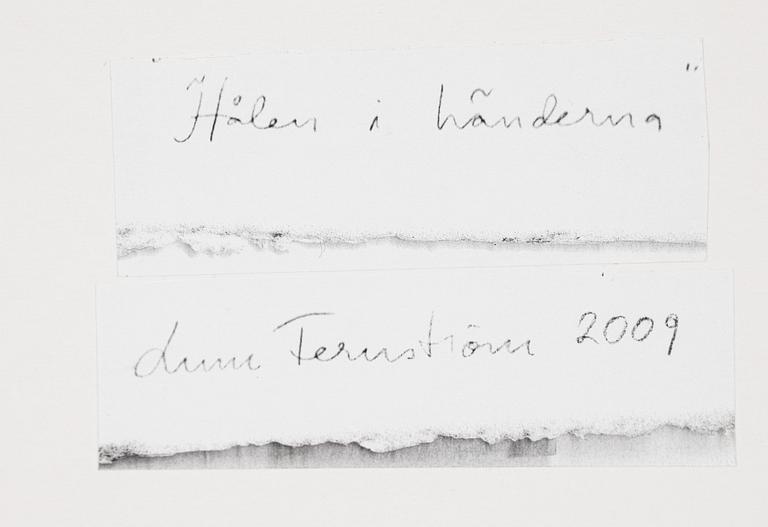 "Hålen i händerna"
Linn Fernström 2009